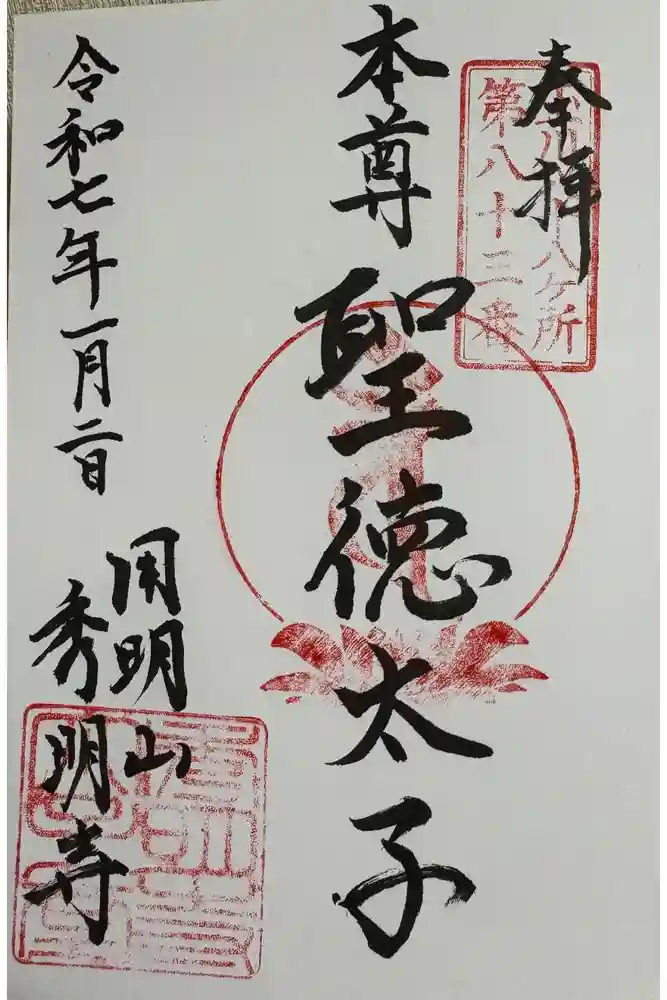 奉拝
八ヶ所
第八十三番
本尊 聖徳太子
令和七年一月二日
用明山
秀明寺